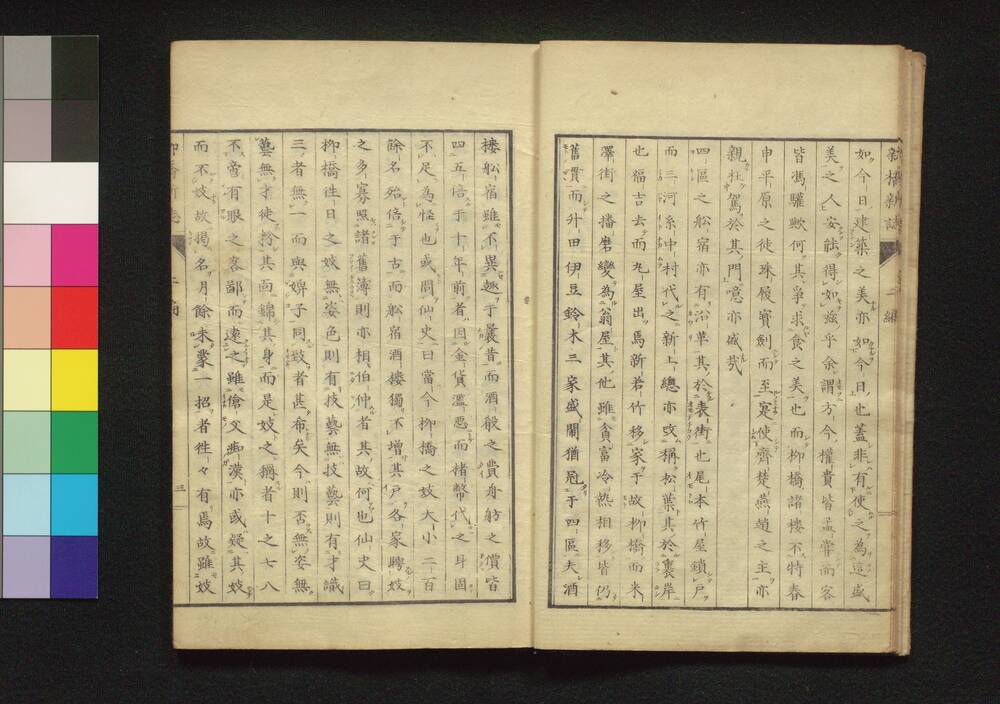 如今日建築之美亦如今日也蓋非有使之為這盛
美之人安能得如茲乎余謂方今權貴皆孟嘗而客
皆馮驩歟何其爭求食之美也而柳橋諸樓不特春
申平原之徒珠履寶劍而至寔使齊楚燕趙之主亦
親枉駕於其門噫亦盛哉
四區之舩宿亦有沿革其於表街也尾本竹屋鎖戶
而三河糸中村代之新上總亦改稱松葉其於裏岸
也福吉去而丸屋出焉新若竹移家于故柳橋而米
澤街之播磨變為翁屋其他雖貧富冷熱相移皆仍
舊貫而升田伊豆鈴木三家盛鬧猶冠于四區夫酒
樓舩宿雖不異趣于曩昔而酒殽之費舟舫之價皆
四五倍于十年前者因金貨濫惡而楮幣代之耳固
不足為怪也或問仙史曰當今柳橋之妓大小二百
餘名殆倍于古而舩宿酒樓獨不增其戶各家聘妓
之多寡照諸舊簿則亦相伯仲者其故何也仙史曰
柳橋徃日之妓無姿色則有技藝無技藝則有才識
三者無一而與婢子同致者甚希矣今則否無姿無
藝無才徒粉其面錦其身而是妓之稱者十之七八
不啻有眼之客鄙而遠之雖傖父痴漢亦或疑其妓
而不妓故揭名月餘未蒙一招者徃々有焉故雖妓
三